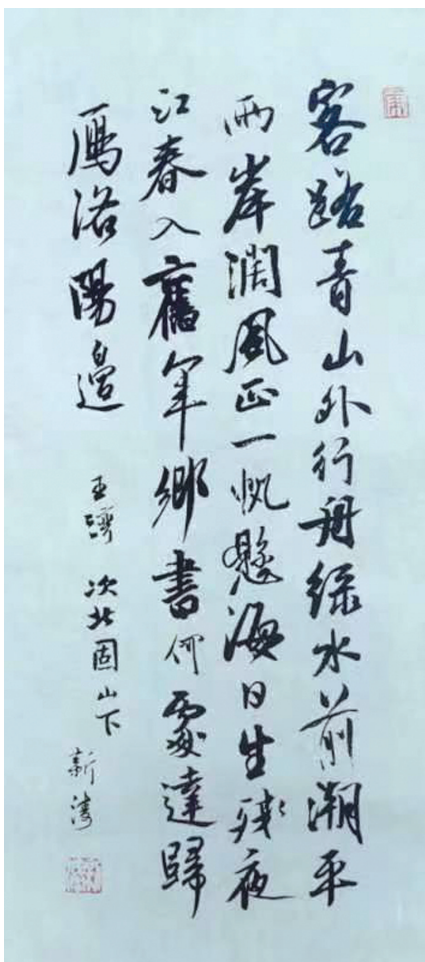 客路青山外行舟绿水前潮平
两岸阔风正一帆悬海日生残夜
江春入舊年鄉書何處達歸
雁洛陽邉
王灣 次北固山下
新濤